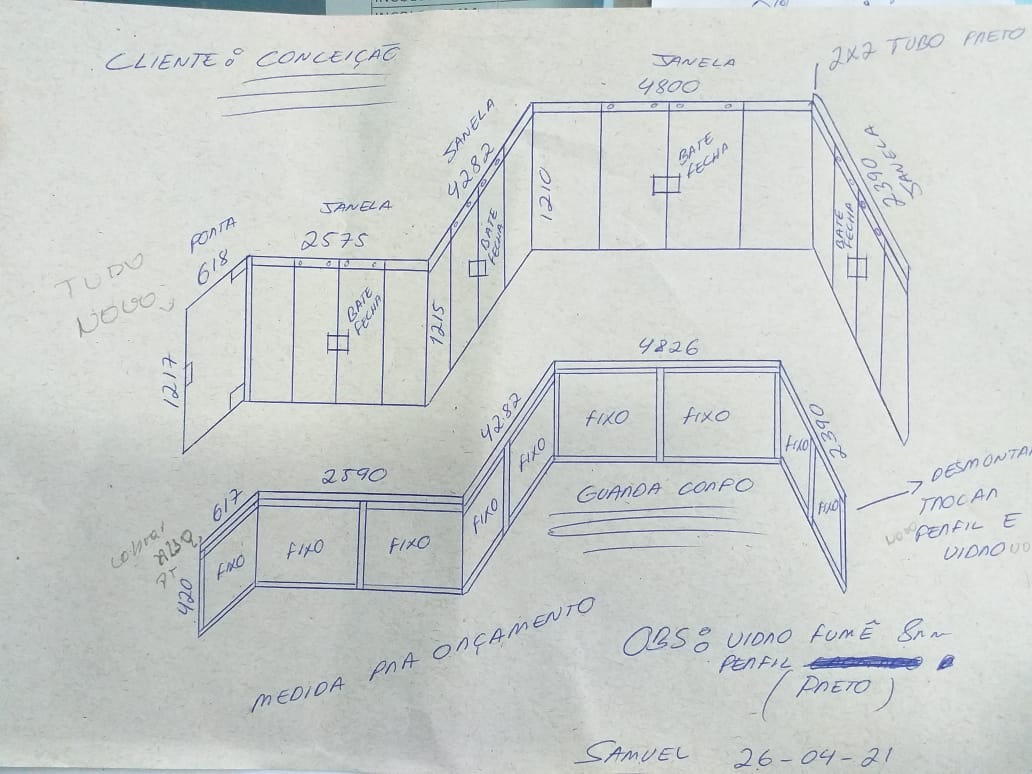 CLIENTE: CONCEIÇÃO
2X2 TUBO PRETO
JANELA
4800
JANELA
4282
JANELA
2390
BATE
FECHA
1210
JANELA
2575
PORTA
618
TUDO
NOVO
BATE
FECHA
BATE
FECHA
BATE
FECHA
1215
1217
4826
FIXO
FIXO
4282
FIXO
FIXO
2390
FIXO
FIXO
2590
617
FIXO
FIXO
FIXO
420
GUARDA CORPO
DESMONTAR
TROCAR
PERFIL E
VIDRO
MEDIDA PRA ORÇAMENTO
OBS: VIDRO FUMÊ 8mm
PERFIL
(PRETO)
SAMUEL 26-04-21